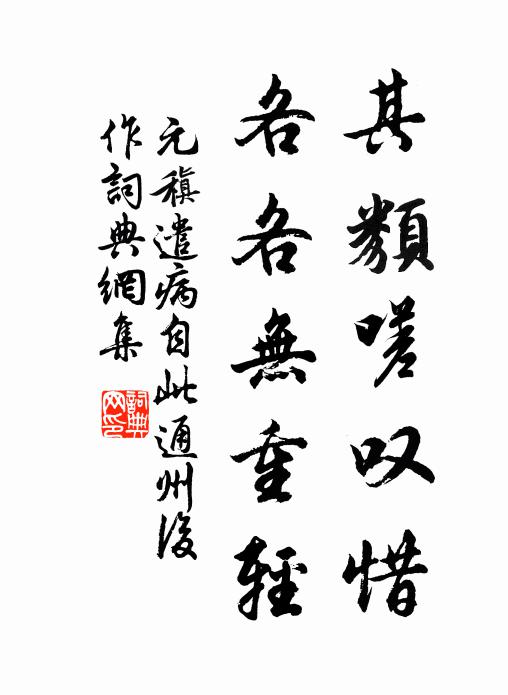 其類嗟叹惜
各各無重輕
元稹遣病自此通州後
作詞典網集
詞典网印